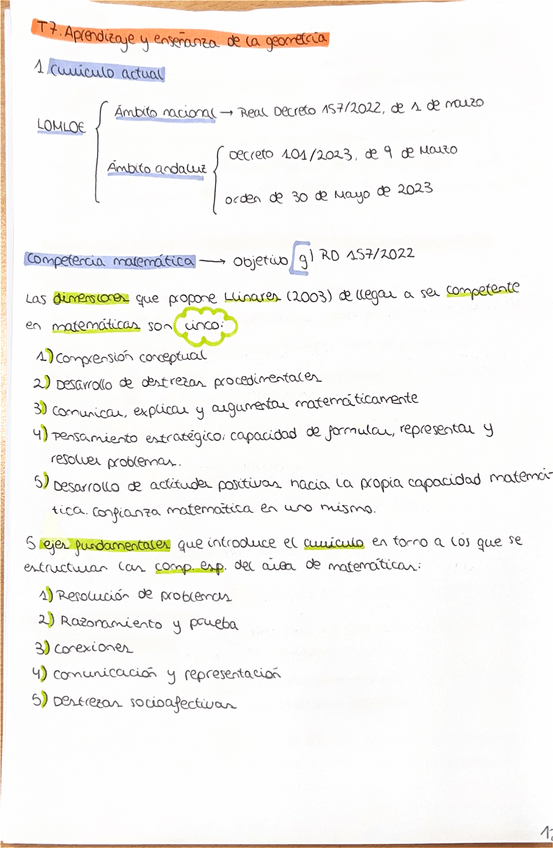 T7. Aprendizaje y enseñanza de la geometría
1. Currículo actual
Ámbito nacional → Real Decreto 157/2022, de 1 de marzo
LOMLOE
Ámbito andaluz
Decreto 101/2023, de 9 de Marzo
orden de 30 de Mayo de 2023
Competencia matemática → objetivo g) RD 157/2022
Las dimensiones que propone Llinares (2003) de llegar a ser competente
en matemáticas son cinco:
1) Comprensión conceptual
2) Desarrollo de destrezas procedimentales
3) Comunicar, explicar y argumentar matemáticamente
4) Pensamiento estratégico: capacidad de formular, representar y
resolver problemas.
5) Desarrollo de actitudes positivas hacia la propia capacidad matemá-
tica. Confianza matemática en uno mismo.
5 ejes fundamentales que introduce el currículo en torno a los que se
estructuran las comp. esp. del área de matemáticas:
1) Resolución de problemas
2) Razonamiento y prueba
3) Conexiones
4) Comunicación y representación
5) Destrezas socioafectivas